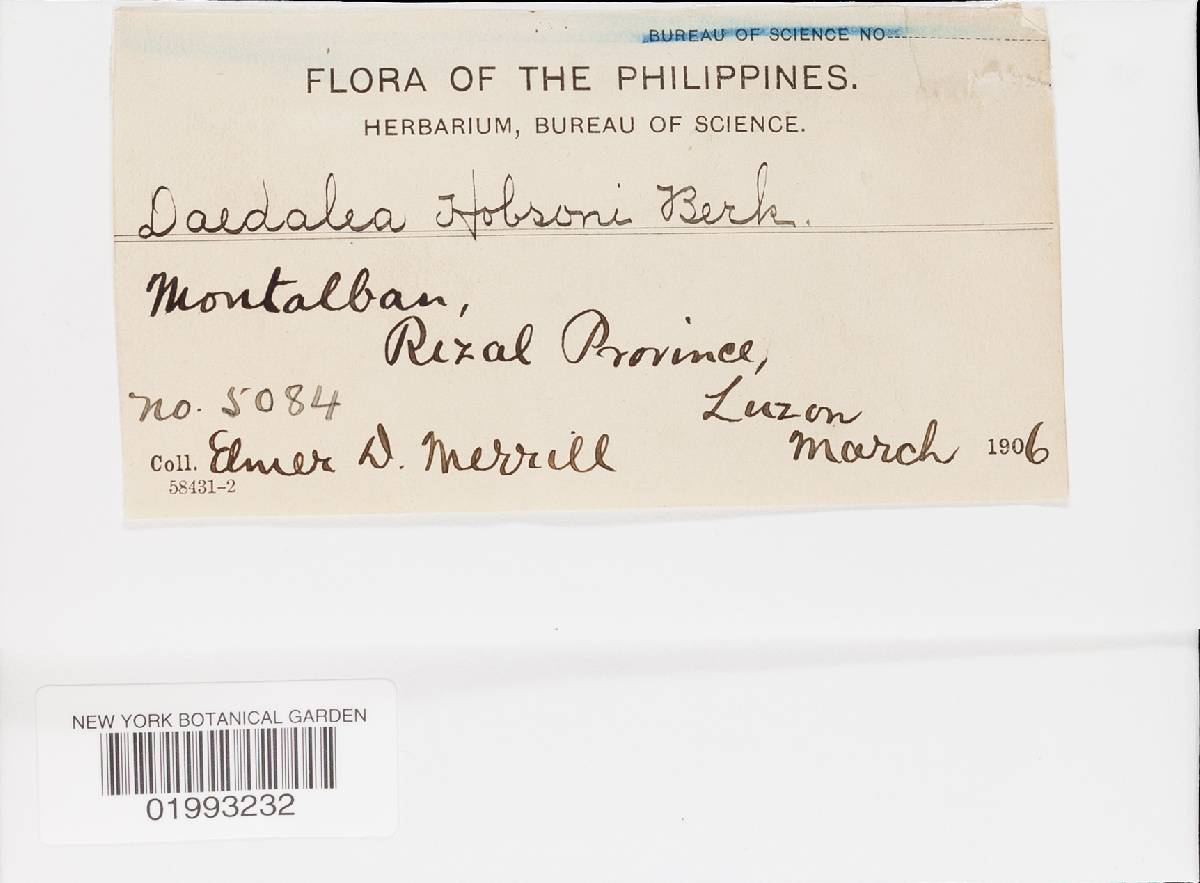 BUREAU OF SCIENCE NO
FLORA OF THE PHILIPPINES.
HERBARIUM, BUREAU OF SCIENCE.
Daedalea Hobsoni Berk.
Montalban,
Rizal Province,
no. 5084 Luzon
Coll. Elmer D. Merrill March 1906
58431-2
NEW YORK BOTANICAL GARDEN
01993232